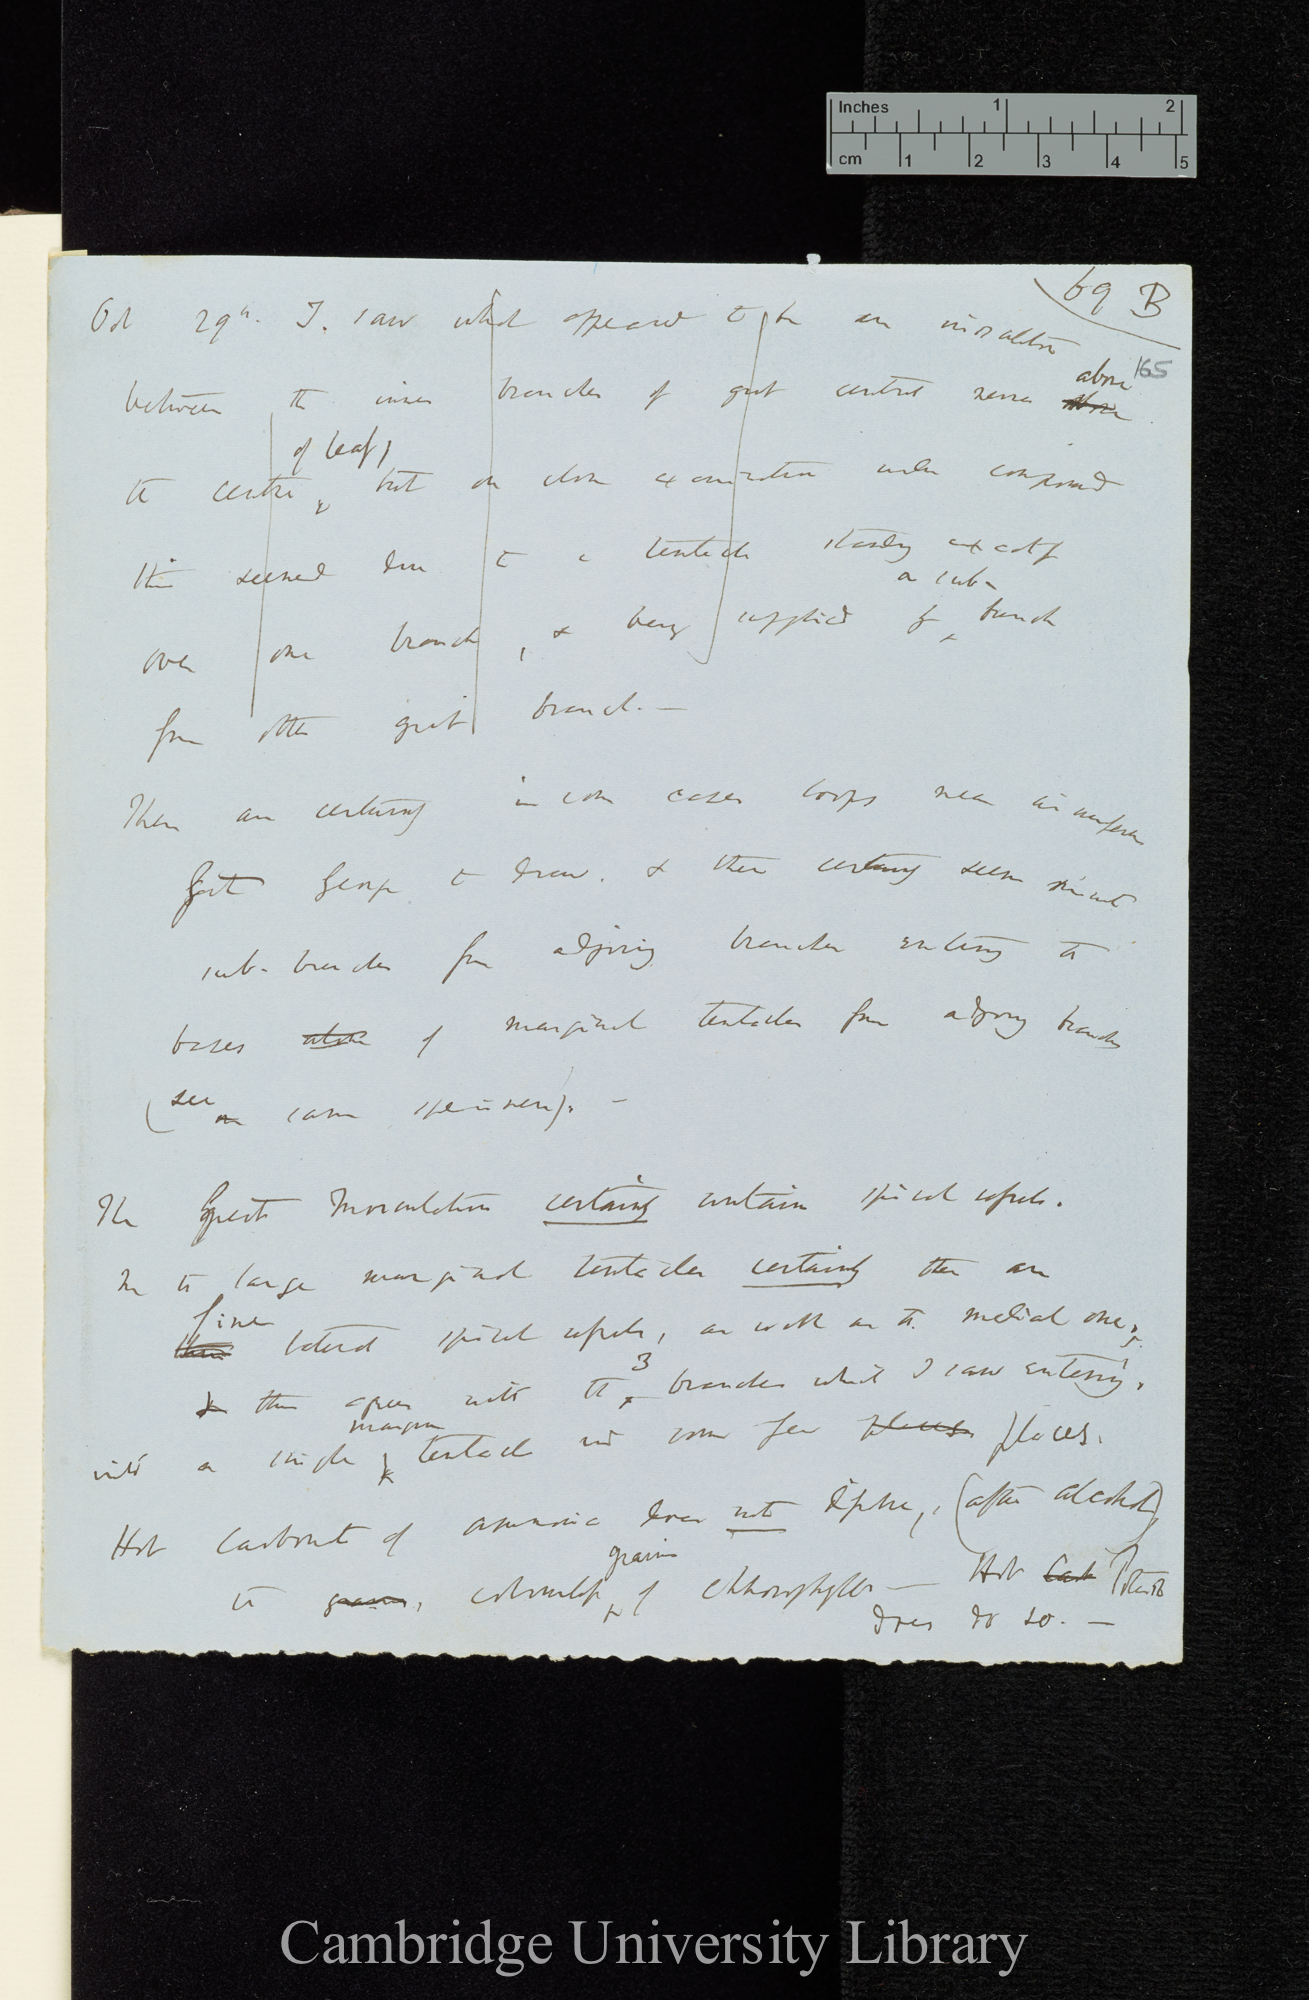 Inches 1 2
cm 1 2 3 4 5
69 B
165
Oct 29th. I. saw what appeared to be an inosculation
between the inner branches of great central nerve above
of leaf,
the centre, but on close examination under compound
this seemed due to a tentacle standing exactly
a sub-
over one branch, & being supplied by branch
from other great branch. —
There are certainly in some cases loops near circumference
George to draw. & there certainly seem minute
sub-branches from adjoining branches entering the
bases of marginal tentacles from adjoining branches
(see same specimen). —
The great Inosculation certainly contain spiral vessels.
In the large marginal tentacles certainly there are
fine
lateral spiral vessels, as well as the medial one;
3
& this agrees with the branches which I saw entering,
margin
into a single tentacle in some few places places.
Hot Carbonate of ammonia does not dissolve, (after alcohol)
grains
the grains, of chlorophyll — Hot Carb Potash
does do so. —
Cambridge University Library